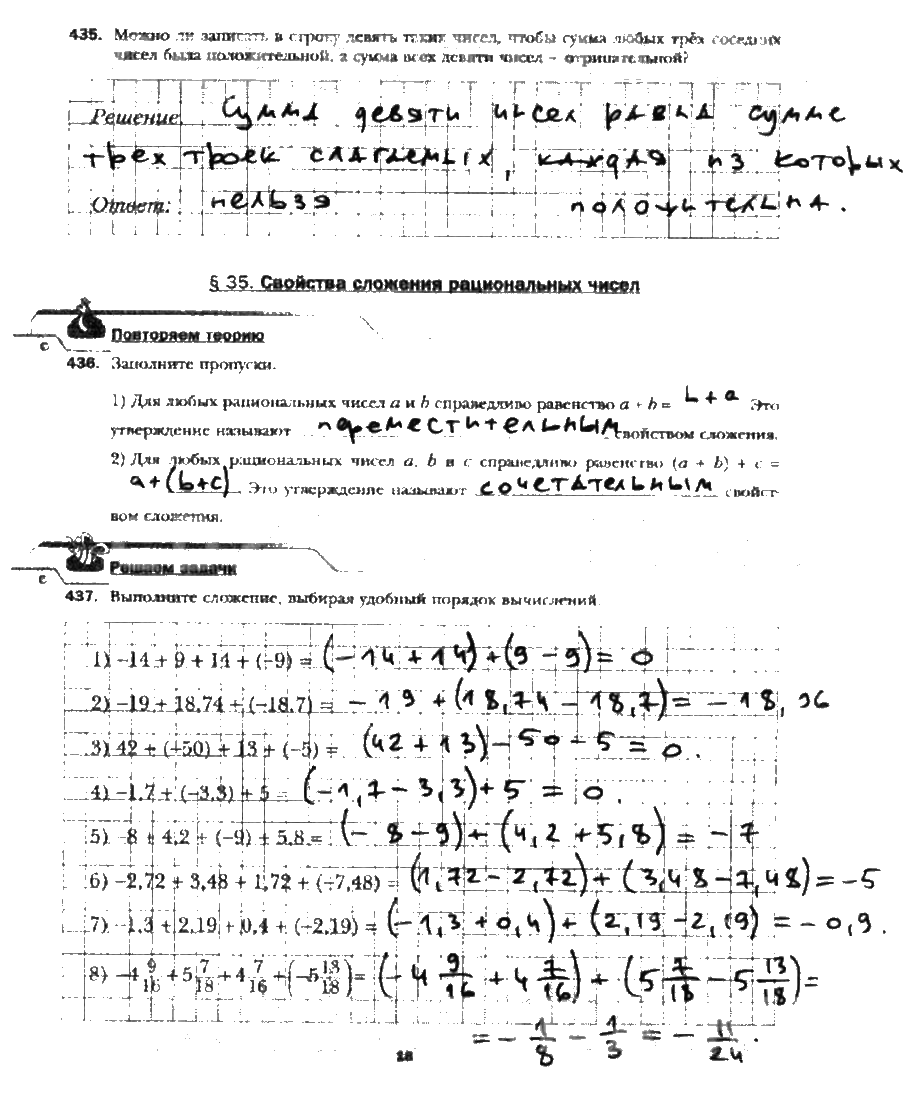 435. Можно ли записать в строку девять таких чисел, чтобы сумма любых трёх соседних
чисел была положительной, а сумма всех девяти чисел – отрицательной?
Решение. Сумма девяти чисел равна сумме
трех троек слагаемых, каждая из которых
Ответ: нельзя положительна.
§ 35. Свойства сложения рациональных чисел
Повторяем теорию
436. Заполните пропуски.
1) Для любых рациональных чисел a и b справедливо равенство a + b = b + a Это
утверждение называют переместительным свойством сложения.
2) Для любых рациональных чисел a, b и c справедливо равенство (a + b) + c =
a+(b+c). Это утверждение называют сочетательным свойст-
вом сложения.
Решаем задачи
437. Выполните сложение, выбирая удобный порядок вычислений.
1) –14 + 9 + 14 + (–9) = (-14+14)+(9-9)= 0
2) –19 + 18,74 + (–18,7) = -19 +(18,74 -18,7)= -18,96
3) 42 + (–50) + 13 + (–5) = (42+13)-50-5 = 0.
4) –1,7 + (–3,3) + 5 = (-1,7-3,3)+5 = 0.
5) –8 + 4,2 + (–9) + 5,8 = (-8-9)+(4,2+5,8) = -7
6) –2,72 + 3,48 + 1,72 + (–7,48) = (1,72-2,72)+(3,48-7,48)=-5
7) –1,3 + 2,19 + 0,4 + (–2,19) = (-1,3+0,4)+(2,19-2,19) = -0,9.
8) –4 9/16 + 5 7/18 + 4 7/16 + (–5 13/18) = (-4 9/16 + 4 7/16) + (5 7/18 - 5 13/18)=
= - 1/8 - 1/3 = - 11/24.